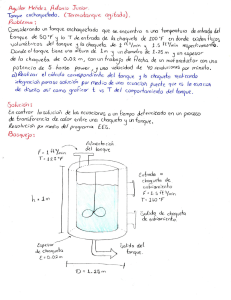 Aguilar Méndez Adaro Junior.
Tanque enchaquetado. (Termotanque agitado).
Problema:
Considerando un tanque enchaquetado que se encuentra a una temperatura de entrada del
tanque de 50°F y la T de entrada de la chaqueta de 200°F en donde ambos flujos
volumétricos del tanque y la chaqueta de 1 ft³/min y 1.5 ft³/min respectivamente.
Donde el tanque tiene una altura de 1m y un diámetro de 1.25 m y un espesor
de la chaqueta de 0.02 m, con un trabajo de flecha de un motoreductor con una
potencia de 5 horse power, y una velocidad de 40 revoluciones por minuto.
Realizar el cálculo correspondiente del tanque y la chaqueta realizando
integración por su solución por medio de una ecuación
de diseño así como graficar t vs T del comportamiento del tanque.
Solución:
Es contar la solución de las ecuaciones a un tiempo determinado en un proceso
de transferencia de calor entre una chaqueta y un tanque.
Resolución por medio del programa EES.
Bosquejo:
Alimentación
del tanque
F = 1 ft³/min
T =
h = 1m
Entrada a
chaqueta de
calentamiento
F = 1.5 ft³/min
T = 200°F
Salida de chaqueta
de calentamiento
Espesor
de chaqueta
E = 0.02 m
Salida del
tanque.
D = 1.25 m